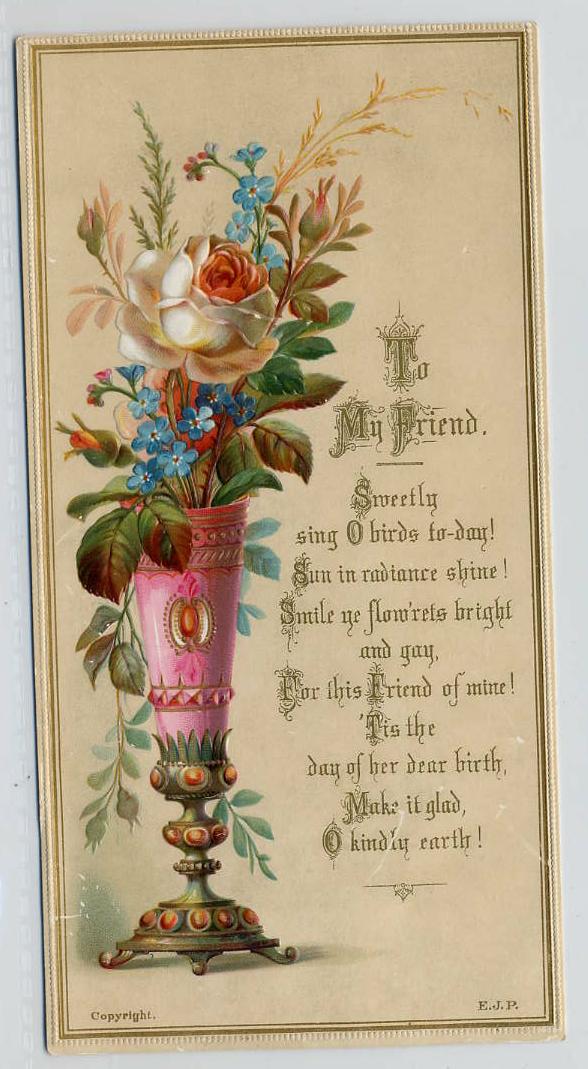 To
My Friend.
Sweetly
sing O birds to-day!
Sun in radiance shine!
Smile ye flow'rets bright
and gay,
For this Friend of mine!
'Tis the
day of her dear birth,
Make it glad,
O kindly earth!
Copyright.
E.J.P.